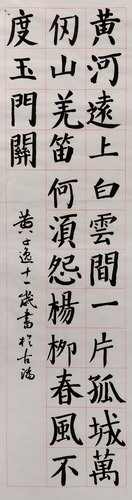 黄河遠上白雲間一片孤城萬
仞山羌笛何須怨楊柳春風不
度玉門關
黄子逸十一歲書於古潘